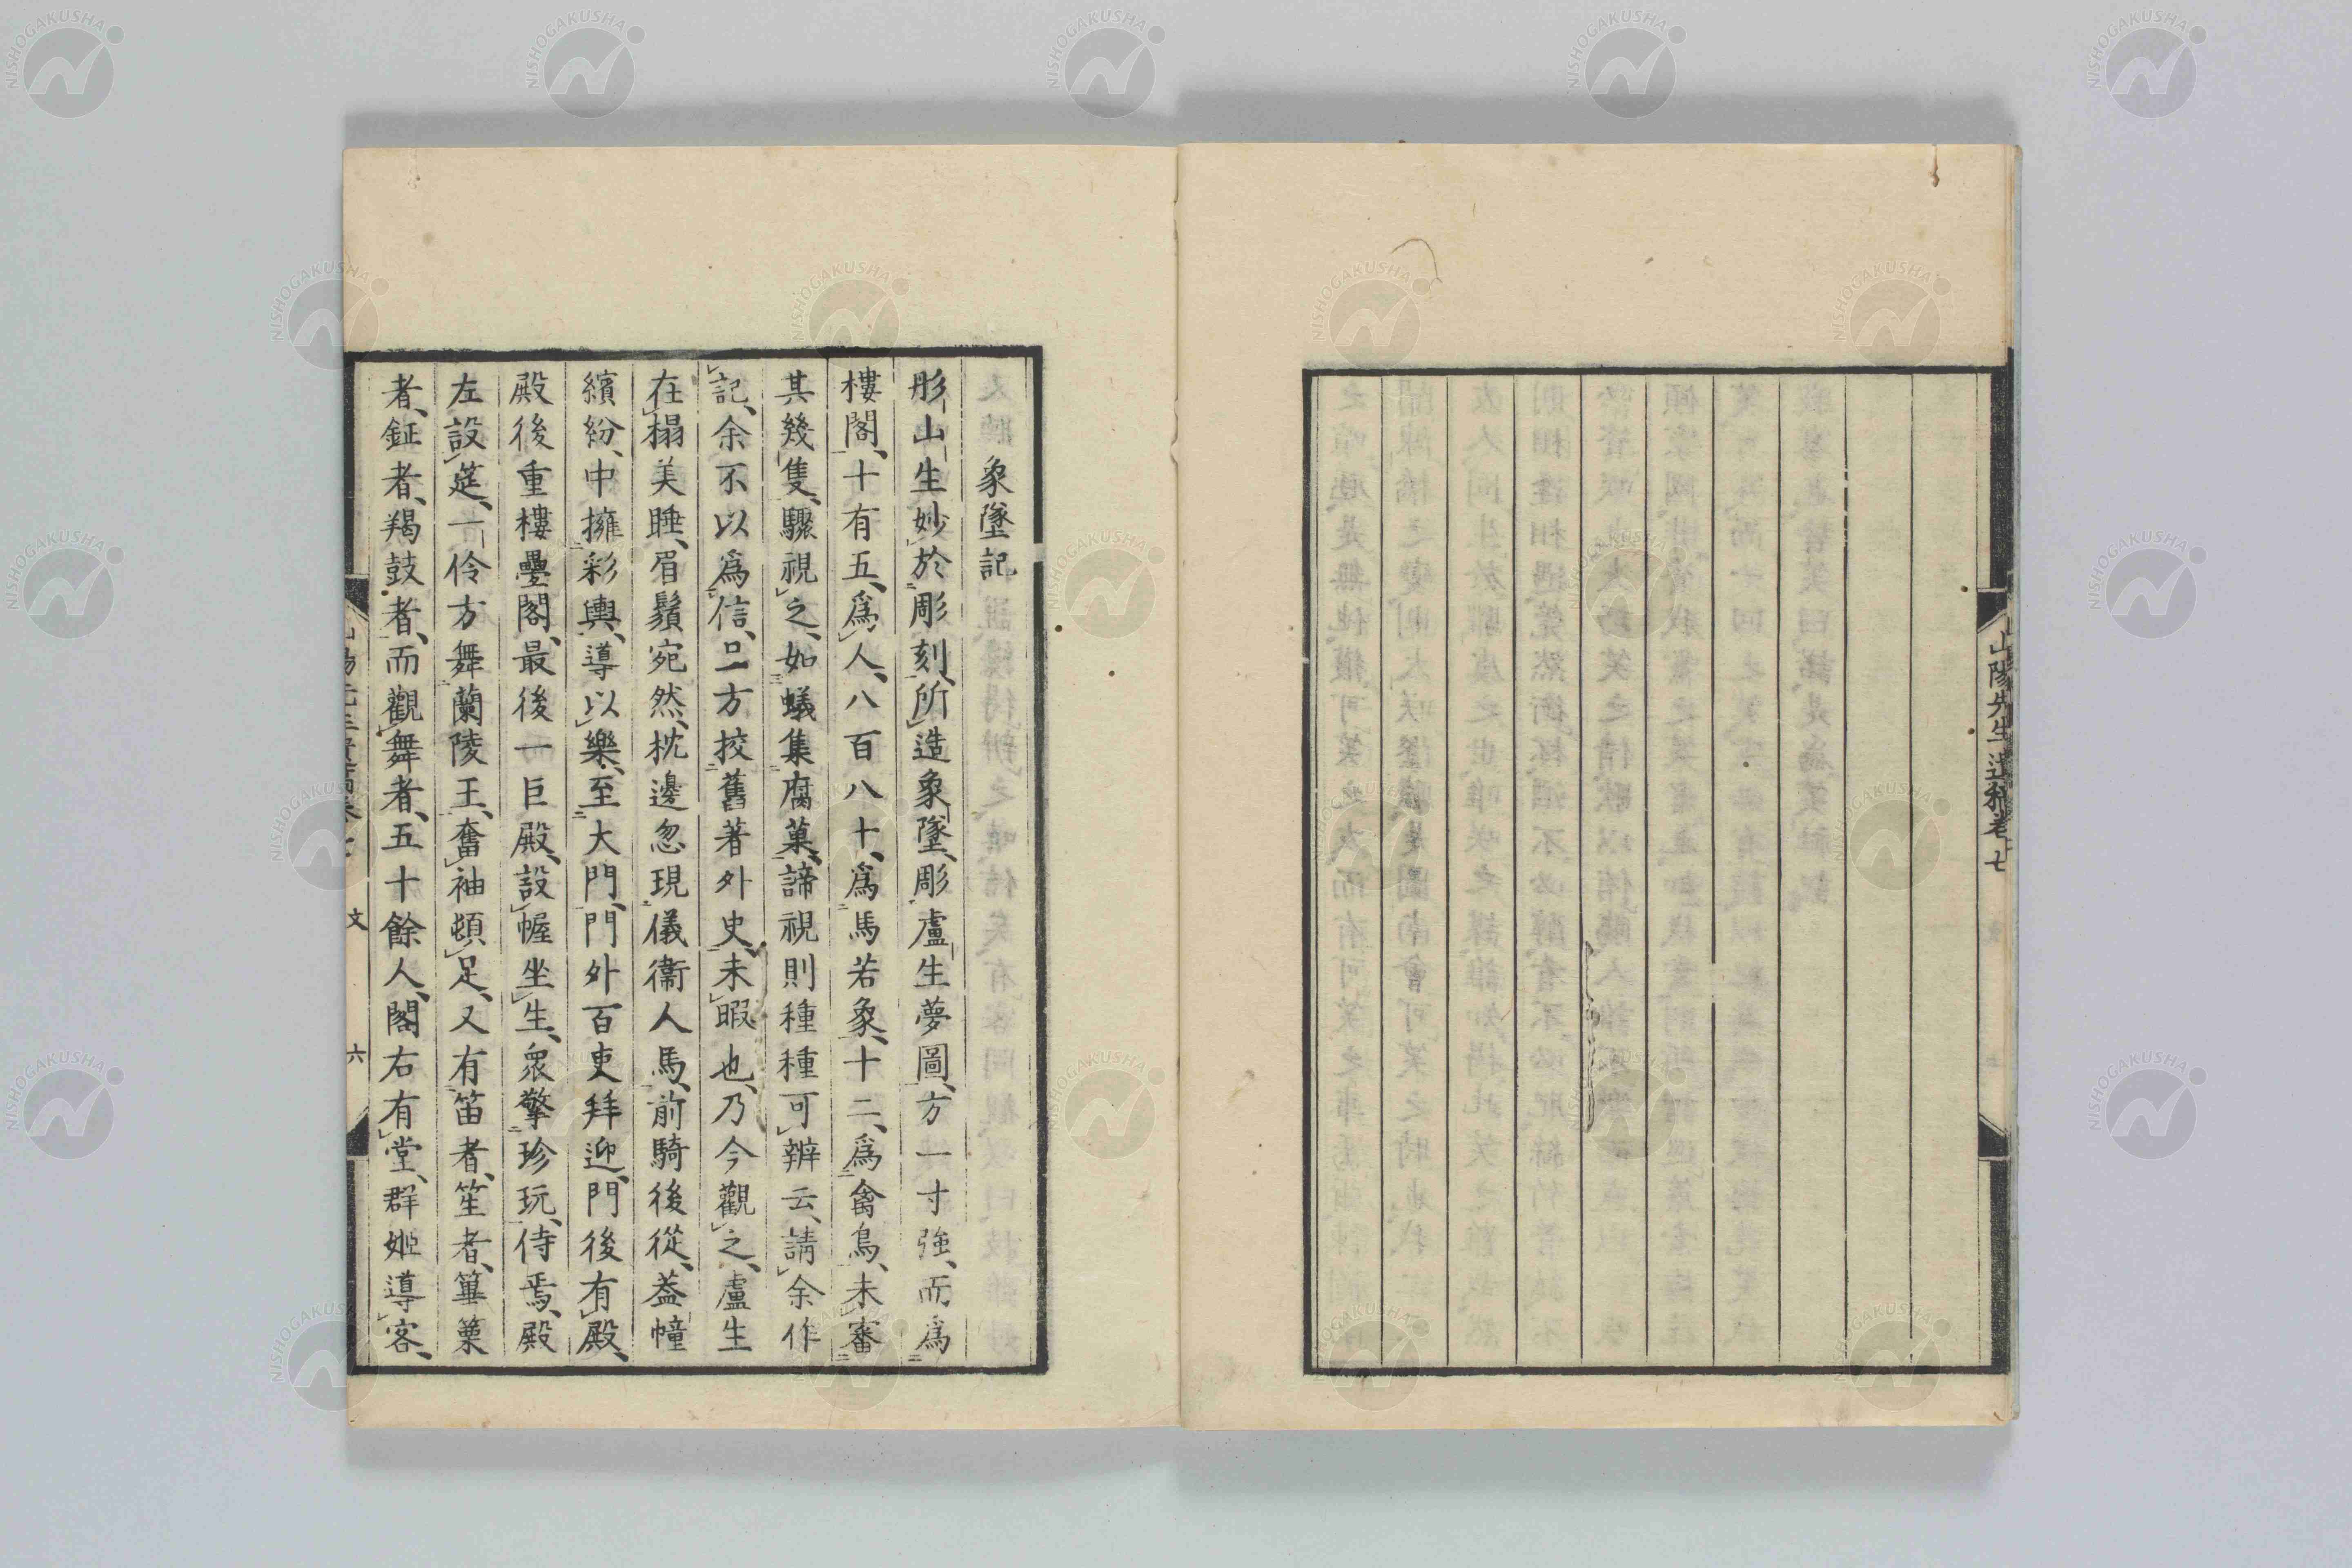 山陽先生遺稿卷七
象墜記
彤山生妙於彫刻、所造象墜、彫盧生夢圖、方一寸強、而爲
樓閣、十有五、爲人、八百八十、爲馬若象、十二、爲禽鳥、未審
其幾隻、驟視之、如蟻集腐菓、諦視則種種可辨云、請余作
記、余不以爲信、且方挍舊著外史、未暇也、乃今觀之、盧生
在榻美睡、眉鬚宛然、枕邊忽現儀衞人馬、前騎後從、葢幢
繽紛、中擁彩輿、導以樂、至大門、門外百吏拜迎、門後有殿、
殿後重樓疊閣、最後一巨殿、設幄坐生、衆擎珍玩、侍焉、殿
左設筵、一伶方舞蘭陵王、奮袖頓足、又有笛者、笙者、篳篥
者、鉦者、羯鼓者、而觀舞者、五十餘人、閣右有堂、群姬導客、
文
六
NISHOGAKUSHA